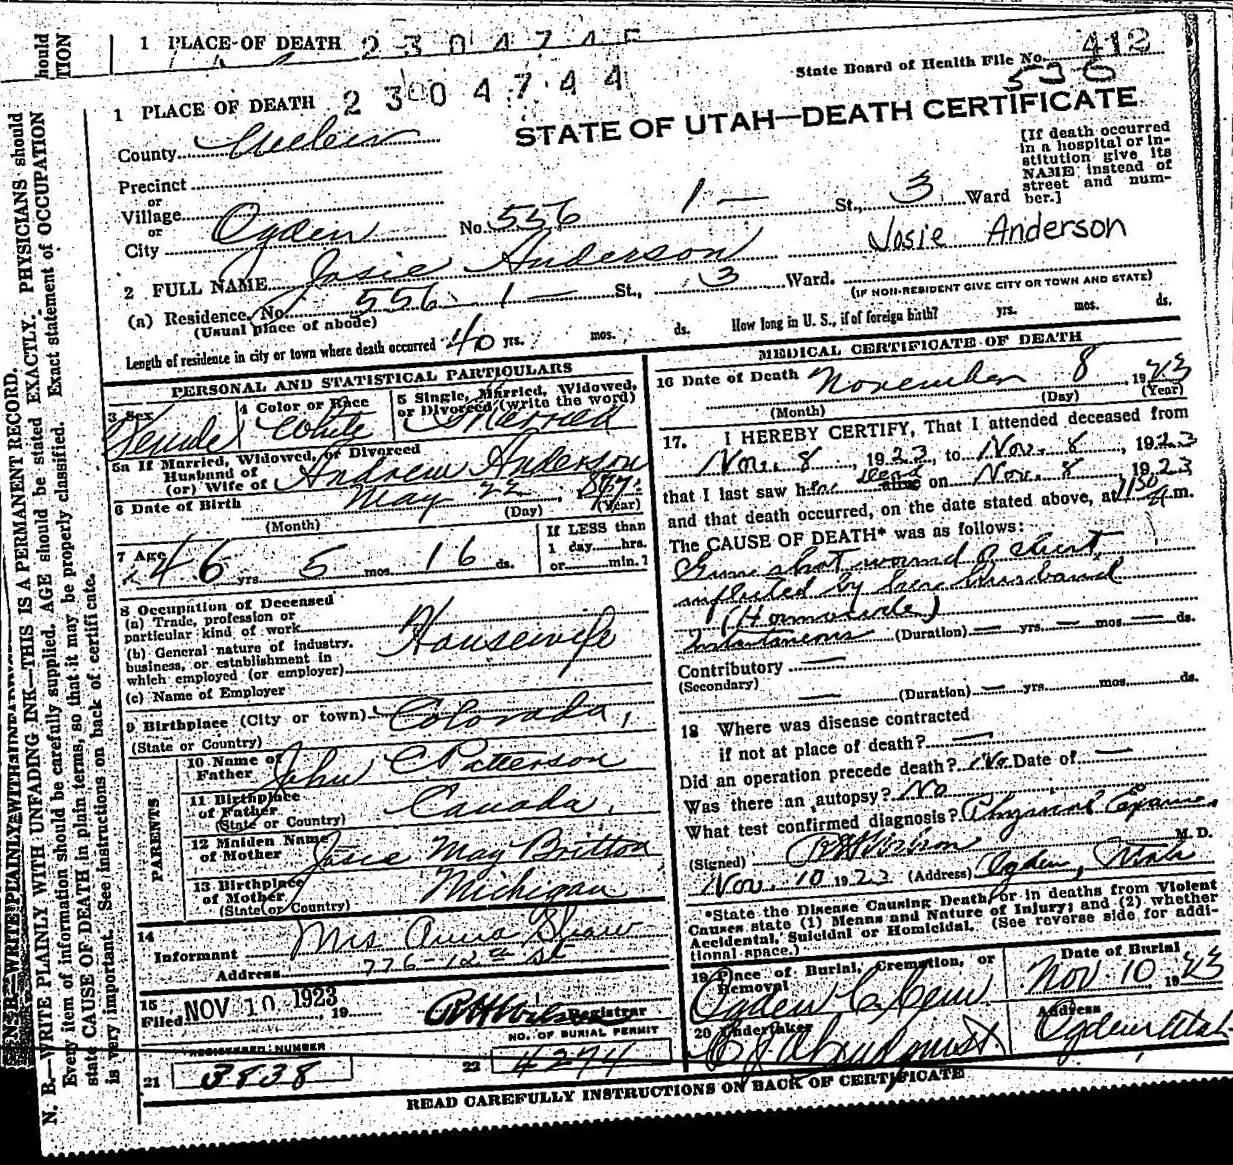 1 PLACE OF DEATH 2 3 0 4 7 4 5
State Board of Health File No. 412
530
1 PLACE OF DEATH 2 3 0 4 7 4 4
STATE OF UTAH—DEATH CERTIFICATE
County Weber
[If death occurred in a hospital or institution give its NAME instead of street and number.]
Precinct
or
Village
or
City Ogden No. 556 1— St., 3 Ward
Josie Anderson
2 FULL NAME Josie Anderson
(a) Residence. No. 556 1— St., 3 Ward.
(Usual place of abode) (IF NON-RESIDENT GIVE CITY OR TOWN AND STATE)
Length of residence in city or town where death occurred 40 yrs. mos. ds. How long in U. S., if of foreign birth? yrs. mos. ds.
PERSONAL AND STATISTICAL PARTICULARS
3 Sex Female
4 Color or Race White
5 Single, Married, Widowed, or Divorced (write the word) Married
5a If Married, Widowed, or Divorced
Husband of
(or) Wife of Andrew Anderson
6 Date of Birth May 22, 1877
(Month) (Day) (Year)
7 Age 46 yrs. 5 mos. 16 ds.
If LESS than
1 day......hrs.
or......min.
8 Occupation of Deceased
(a) Trade, profession or
particular kind of work Housewife
(b) General nature of industry,
business, or establishment in
which employed (or employer)
(c) Name of Employer
9 Birthplace (City or town) Colorado,
(State or Country)
PARENTS
10 Name of
Father John C Patterson
11 Birthplace
of Father Canada.
(State or Country)
12 Maiden Name
of Mother Josie May Britton
13 Birthplace
of Mother Michigan
(State or Country)
14
Informant Mrs Anna Shaw
Address 776-12th St
15
Filed NOV 10 1923, 19
Registrar
REGISTERED NUMBER
21 3838
NO. OF BURIAL PERMIT
22 4274
MEDICAL CERTIFICATE OF DEATH
16 Date of Death November 8, 1923
(Month) (Day) (Year)
17. I HEREBY CERTIFY, That I attended deceased from
Nov. 8, 1923, to Nov. 8, 1923
that I last saw her dead alive on Nov. 8, 1923
and that death occurred, on the date stated above, at 1150 a.m.
The CAUSE OF DEATH* was as follows:
Gun shot wound of chest,
inflicted by her husband
(Homicide)
Instantaneous (Duration) — yrs. — mos. — ds.
Contributory —
(Secondary)
— (Duration) — yrs. mos. ds.
18 Where was disease contracted
if not at place of death? —
Did an operation precede death? No Date of —
Was there an autopsy? No
What test confirmed diagnosis? Physical Exam.
(Signed) M. D.
Nov. 10 1923 (Address) Ogden, Utah
*State the Disease Causing Death, or in deaths from Violent
Causes state (1) Means and Nature of Injury; and (2) whether
Accidental, Suicidal or Homicidal. (See reverse side for addi-
tional space.)
19 Place of Burial, Cremation, or
Removal
Ogden C. Cem
Date of Burial
Nov. 10, 1923
20 Undertaker
Address
Ogden Utah
READ CAREFULLY INSTRUCTIONS ON BACK OF CERTIFICATE
N. B.—WRITE PLAINLY WITH UNFADING INK—THIS IS A PERMANENT RECORD.
Every item of information should be carefully supplied. AGE should be stated EXACTLY. PHYSICIANS should
state CAUSE OF DEATH in plain terms, so that it may be properly classified. Exact statement of OCCUPATION
is very important. See instructions on back of certificate.